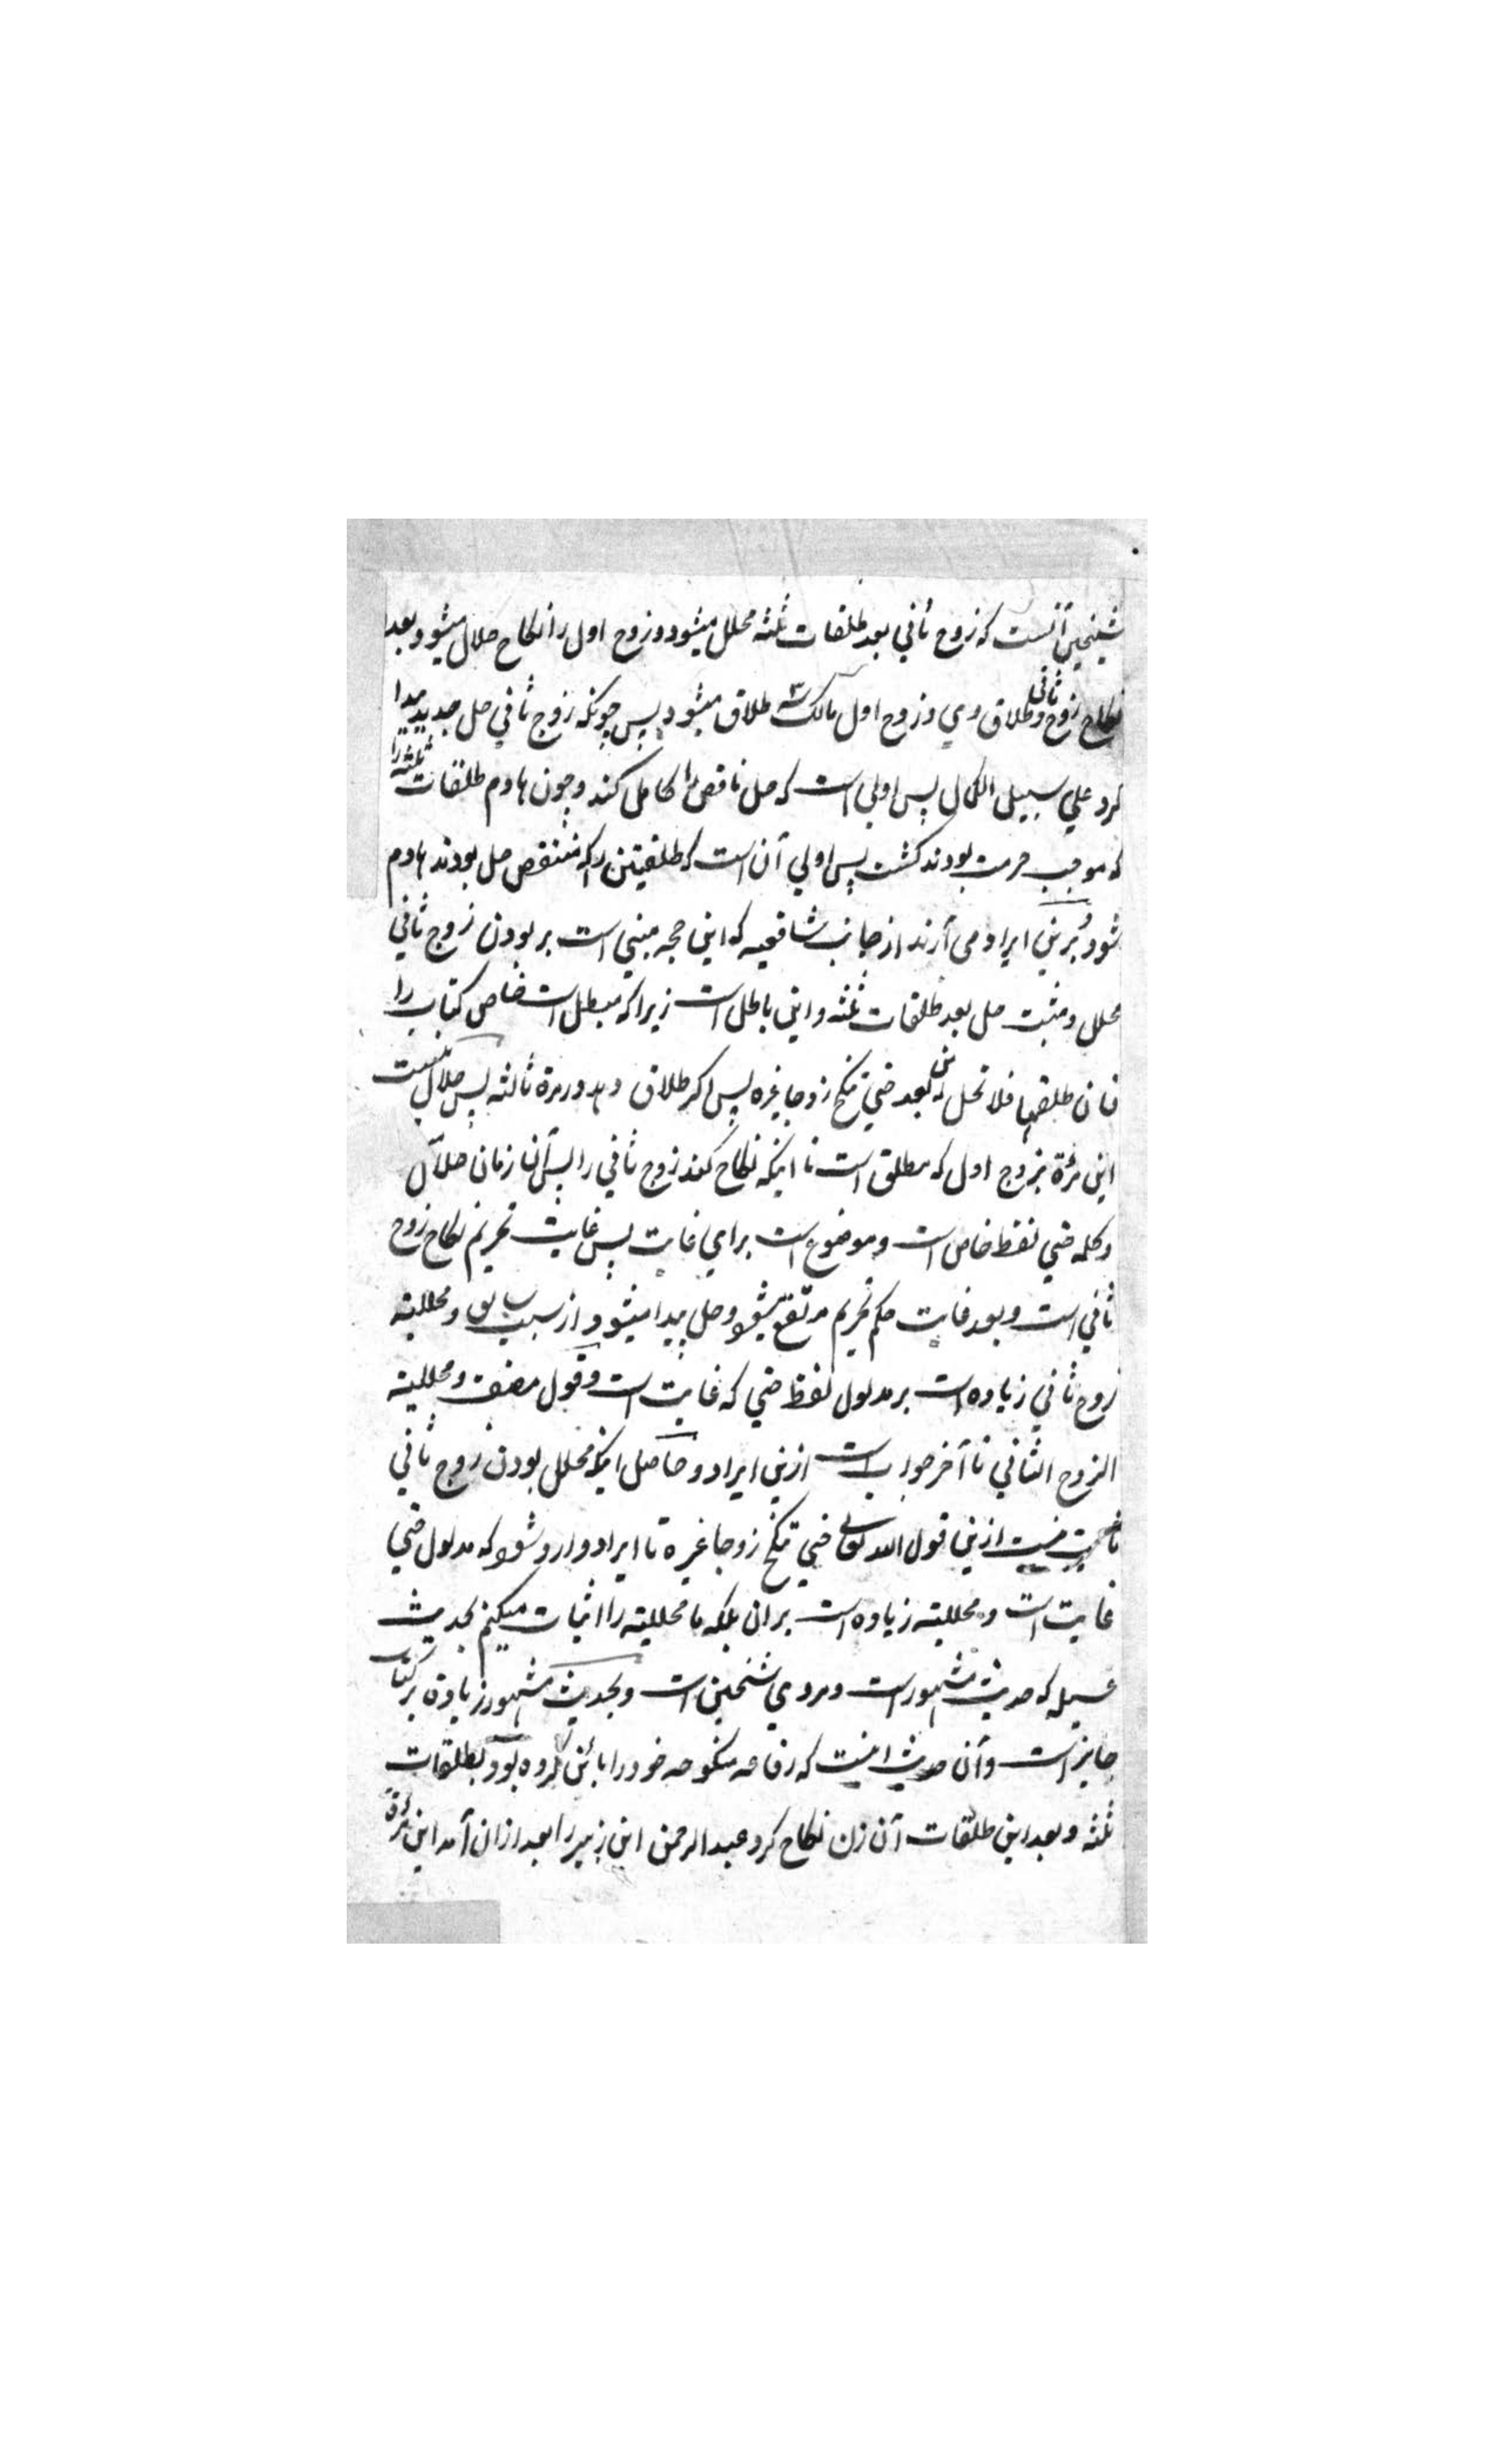 شیخین آنست که زوج ثاني بعد طلقات ثلثه محلل میشود و زوج اول را نکاح حلال میشود بعد
نکاح زوج ثانی و طلاق وي و زوج اول مالک سه طلاق میشود پس چونکه زوج ثاني حل جدید پیدا
کرد علي سبیل الکمال پس اولی است که حل ناقص را کامل کند و چون هادم طلقات ثلثه را
که موجب حرمت بودند گشت پس اولي آن است که طلقیتن را که منقص حل بودند هادم
شود و برین ایراد می آرند از جانب شافعیه که این حجه مبني است بر بودن زوج ثاني
محلل و مثبت حل بعد طلقات ثلثه و این باطل است زیرا که مبطل است خاص کتاب را
فان طلقها فلا تحل له من بعد حتي تنکح زوجا غیره پس اکر طلاق دهد در مرة ثالثه پس حلال نیست
این مرءة بزوج اول که مطلق است تا اینکه نکاح کند زوج ثاني را پس آن زمان حلال
و کلمه حتي لفظ خاص است و موضوع است براي غایت پس غایت تحریم نکاح زوج
ثاني است و بعد غایت حکم تحریم مرتفع میشود و حل پیدا میشود از سبب سابق و محللیته
زوج ثاني زیاده است بر مدلول لفظ حتي که غایت است و قول مصنف و محللیته
الزوج الثاني تا آخر جواب است ازین ایراد و حاصل اینکه محلل بودن زوج ثاني
ثابت نیست ازین قول الله تعالی حتي تنکح زوجا غیره تا ایراد وارد شود که مدلول حتي
غایت است و محللیته زیاده است بران بلکه ما محللیته را اثبات میکنیم بحدیث
عسیله که حدیث مشهور است و مروي شیخین است و بحدیث مشهور زیادة بر کتاب
جایز است و آن حدیث اینست که رفاعه منکوحه خود را بائن کرده بود بطلقات
ثلثه و بعد این طلقات آن زن نکاح کرد عبد الرحمن ابن زبیر را بعد ازان آمد این مرءة